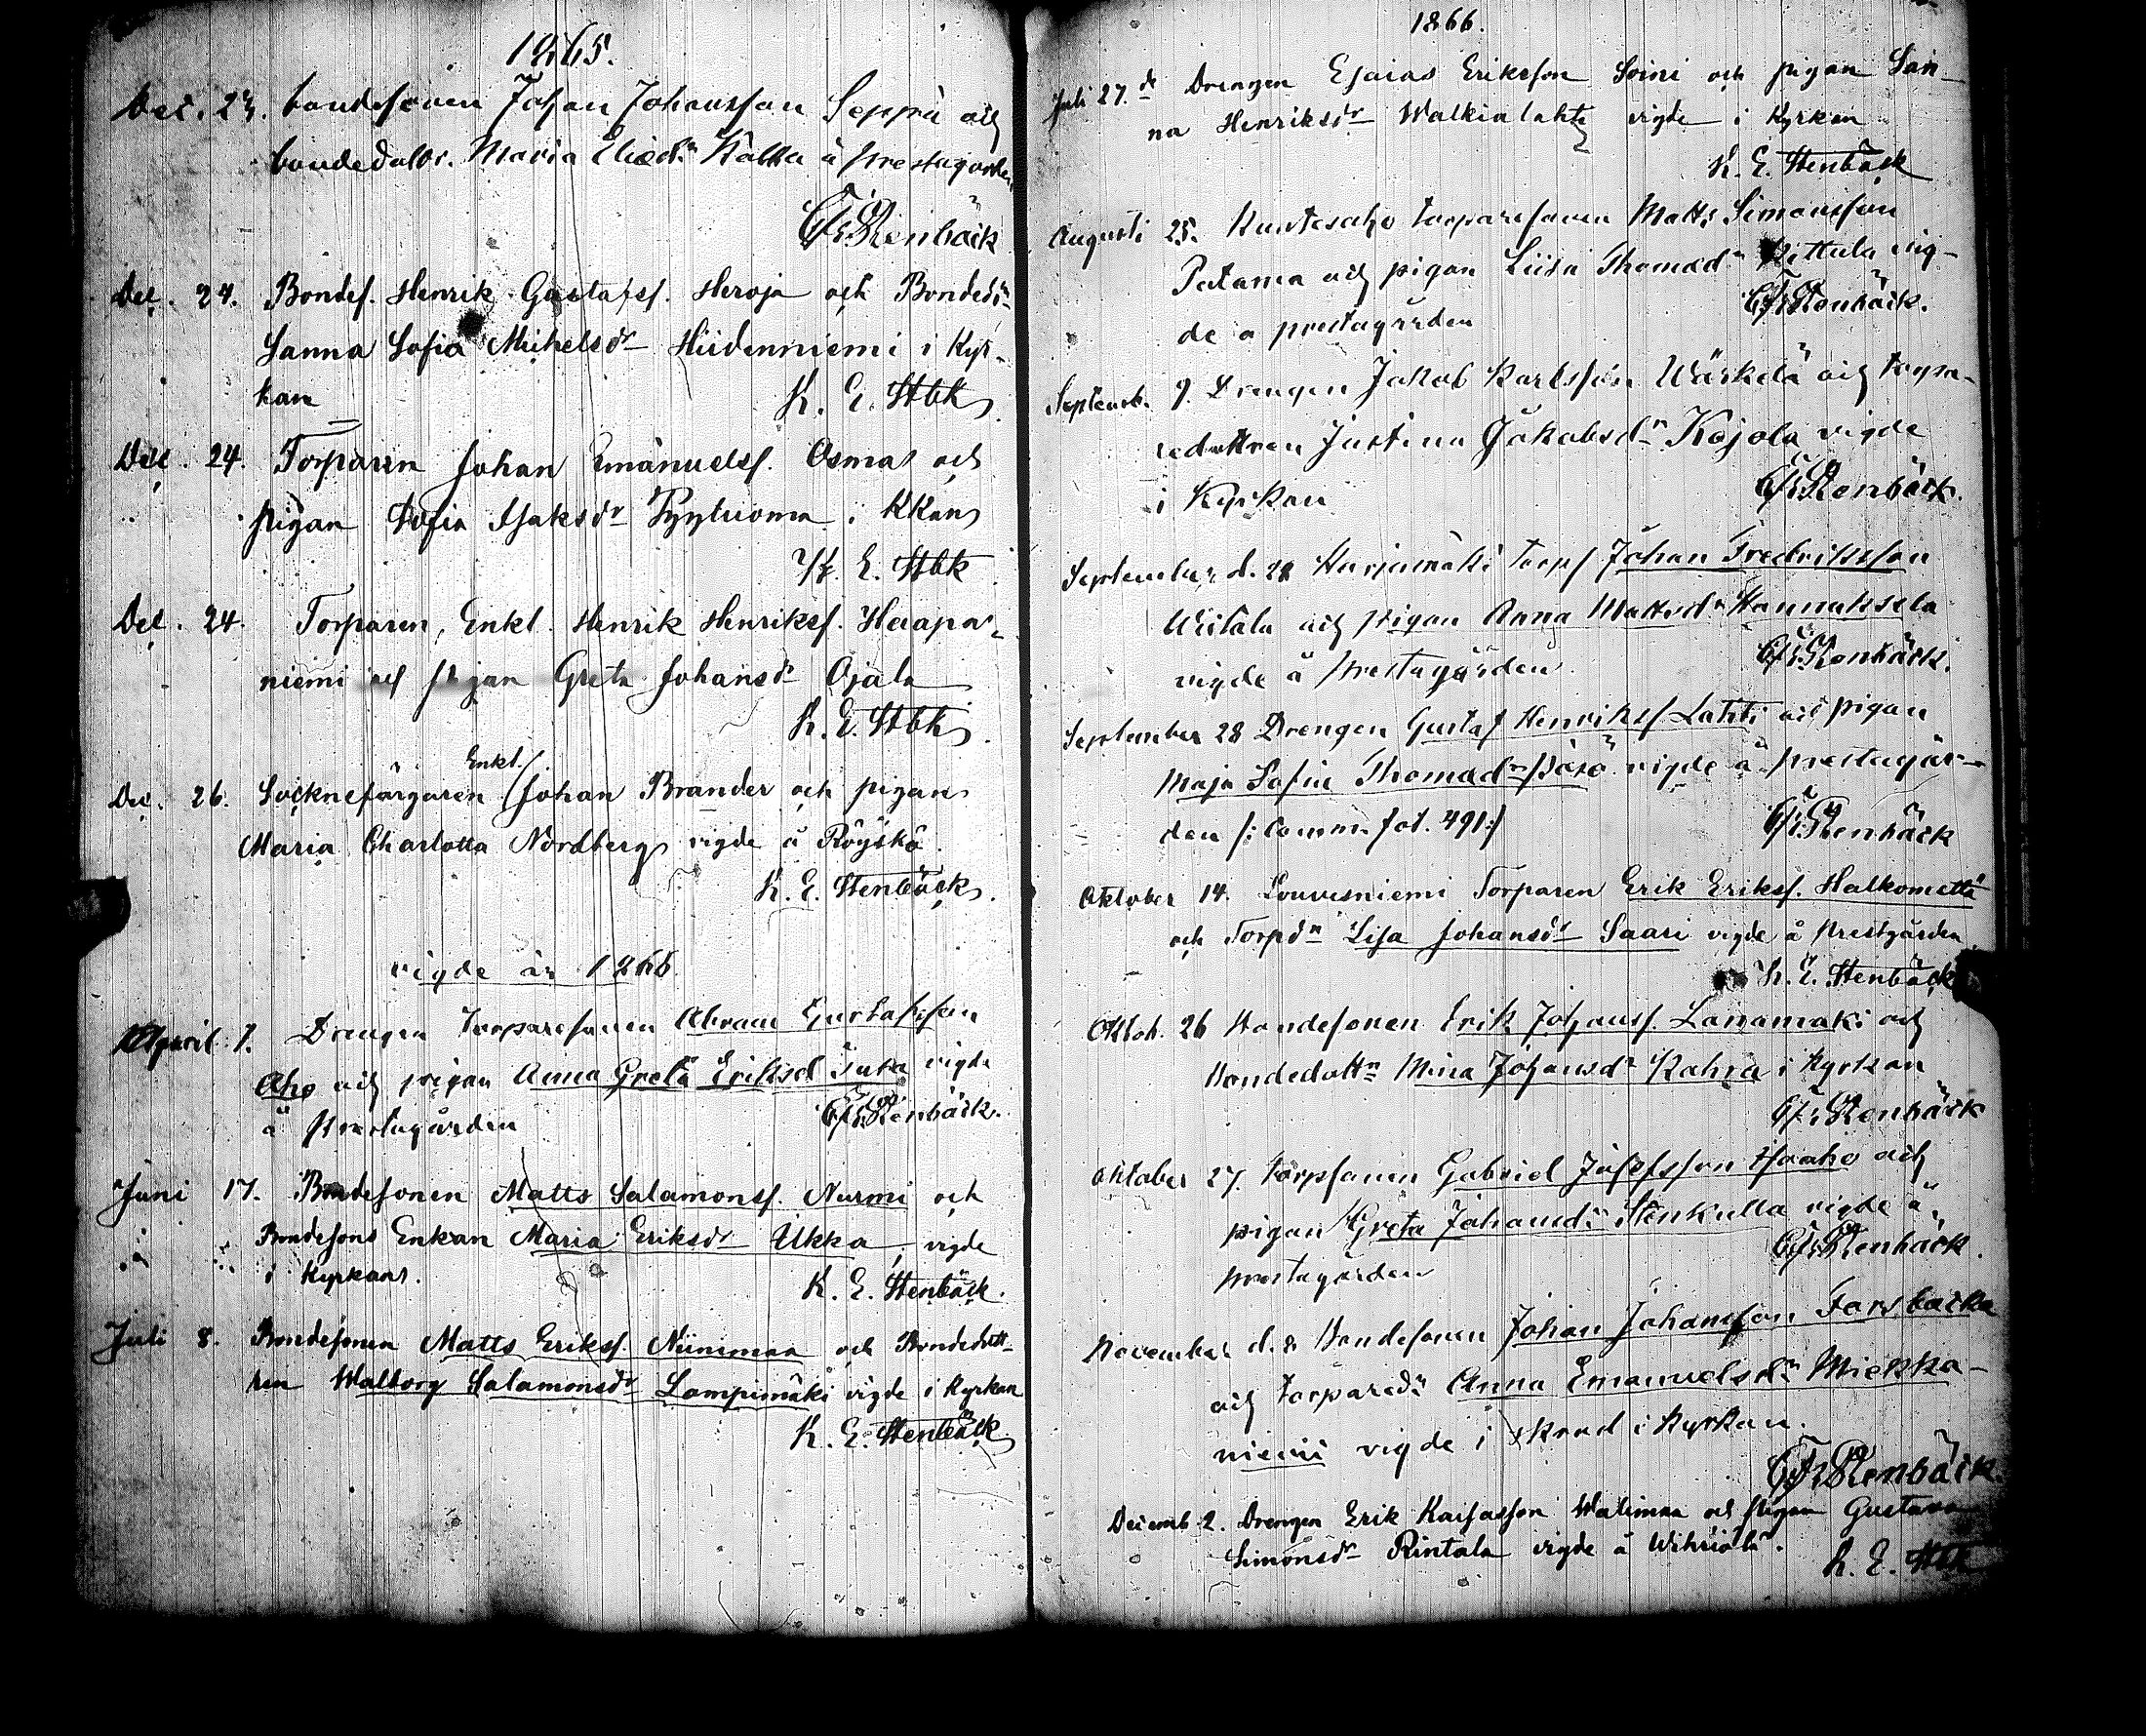 1865.
Dec. 23. bondesonen Johan Johansson Seppä och
bondedottr. Maria Eliædr Kalka å prestgården
C Fr Stenbäck
Dec. 24. Bondes. Henrik Gustafss. Heroja och Bondedr
Sanna Sofia Michelsdr Hiidenniemi i Kyr-
kan
K. E. Stbk
Dec. 24. Torparen Johan Emanuelss. Osmas och
pigan Sofia Isaksdr Pyyluoma i KKan
K. E. Stbk
Dec. 24. Torparen, Enkl. Henrik Henrikss. Haapa-
niemi och pigan Greta Johansdr Ojala
K. E. Stbk
Enkl.
Dec. 26. Socknefärgaren Johan Brander och pigan
Maria Charlotta Nordberg vigde å Röyskö.
K. E. Stenbäck.
vigde år 1866
April 1. Drengen Torparesonen Abram Gustafsson
Aho och pigan Anna Greta Eriksd vigde
å prestagården
C Fr Stenbäck.
Juni 17. Bondesonen Matts Salamonss. Nurmi och
Bondesons Enkan Maria Eriksdr Ukka, vigde
i Kyrkan.
K. E. Stenbäck.
Juli 8. Bondesonen Matts Erikss. Niinimaa och Bondedott-
ren Walborg Salamonsdr Lampimäki vigde i Kyrkan
K. E. Stenbäck
1866.
Juli 27.de Drengen Esaias Eriksson Soini och pigan San-
na Henriksdr Walkialahti vigde i Kyrkan
K. E. Stenbäck
Augusti 25. torparesonen Matts Simonsson
Patama och pigan Liisa Thomasdr Pittula vig-
de å prestagården
C Fr Stenbäck.
Septemb. 9. Drengen Jakob Karlsson Wärkelä och torpa-
redottren Justina Jakobsdr Kojola vigde
i Kyrkan
C Fr Stenbäck.
September d. 28 Harjumäki torps Johan Fredriksson
Wistala och pigan Anna Mattsdr Hannuksela
vigde å prestagården
C Fr Stenbäck.
September 28 Drengen Gustaf Henrikss Lahti och pigan
Maja Sofia Thomasdr Päsö vigde å prestagår-
den /: Comm. fol. 491 :/
C Fr Stenbäck
Oktober 14. Louvesniemi Torparen Erik Erikss. Halkometsä
och Torpdn Lisa Johansdr Saari vigde å prestgården
K. E. Stenbäck
Oktob. 26 Bondesonen Erik Johanss. Länämäki och
Bondedottn Mina Johansdr Kahra i Kyrkan
C Fr Stenbäck
Oktober 27. torpsonen Gabriel Josefsson Haaho och
pigan Greta Johansdr Stenkulla vigde å
prestagården
C Fr Stenbäck.
November d. 2 Bondesonen Johan Johansson Forsbacka
och torparedr Anna Emanuelsdr Mieska-
niemi vigde i skrud i Kyrkan.
C Fr Stenbäck.
Decemb 2. Drengen Erik Kaifasson Walimaa och pigan Gustava
Simonsdr Rintala vigde å Wihriälä.
K. E. Stbk